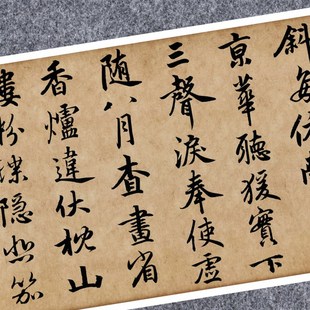 斜每依南
京華聽猨實下
三聲淚奉使虛
随八月查畫省
香爐違伏枕山
樓粉堞隐悲笳